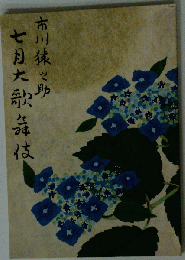 市川猿之助
七月大歌舞伎